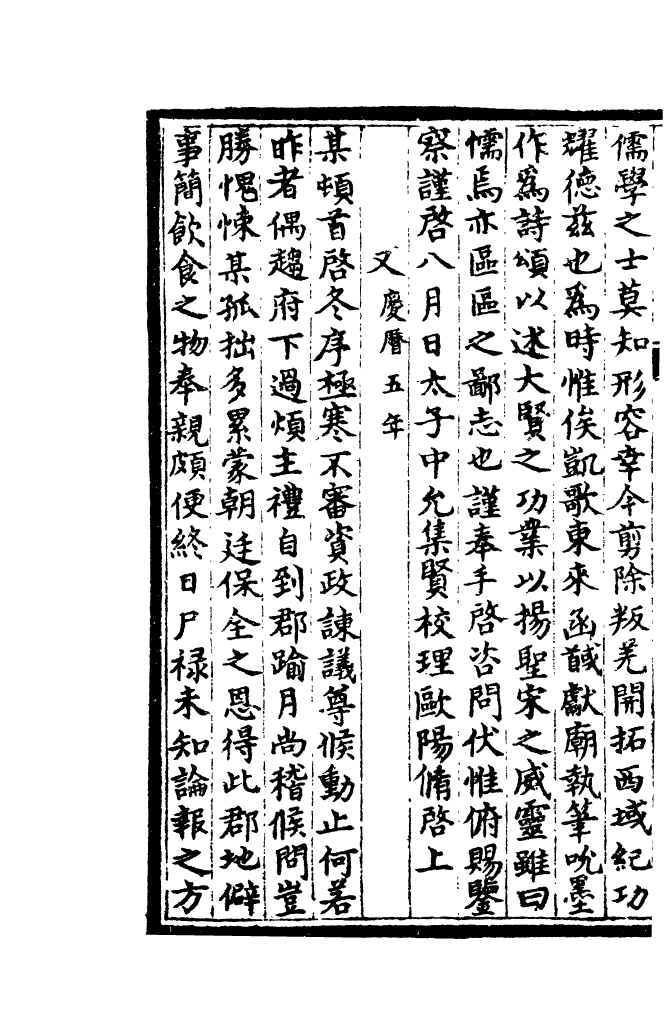 儒學之士莫知形容幸今剪除叛羌開拓西域紀功
耀德兹也為時惟俟凱歌東來函馘獻廟執筆吮墨
作為詩頌以述大賢之功業以揚聖宋之威靈雖曰
懦焉亦區區之鄙志也謹奉手啓咨問伏惟俯賜鑒
察謹啓八月日太子中允集賢校理歐陽脩啓上
又慶曆五年
某頓首啓冬序極寒不審資政諫議尊候動止何若
昨者偶趨府下過煩主禮自到郡踰月尚稽候問豈
勝愧悚某孤拙多累蒙朝廷保全之恩得此郡地僻
事簡飲食之物奉親頗便終日尸禄未知論報之方